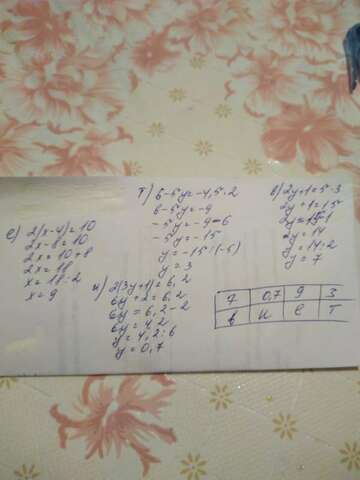 т) 6-5y=-4,5·2
6-5y=-9
-5y=-9-6
-5y=-15
y=-15:(-5)
y=3
в) 2y+1=5·3
2y+1=15
2y=15-1
2y=14
y=14:2
y=7
е) 2(x-4)=10
2x-8=10
2x=10+8
2x=18
x=18:2
x=9
и) 2(3y+1)=6,2
6y+2=6,2
6y=6,2-2
6y=4,2
y=4,2:6
y=0,7
7 0,7 9 3
в и е т